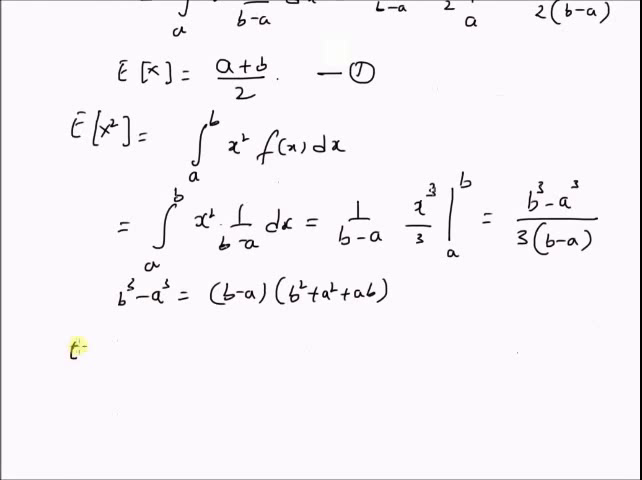 ∫ₐ b-a b-a 2 a 2(b-a)
E[x] = (a+b)/2. — ①
E[x²] = ∫ₐᵇ x² f(x) dx
= ∫ₐᵇ x². 1/(b-a) dx = 1/(b-a) x³/3 |ₐᵇ = (b³-a³)/(3(b-a))
b³-a³ = (b-a)(b²+a²+ab)